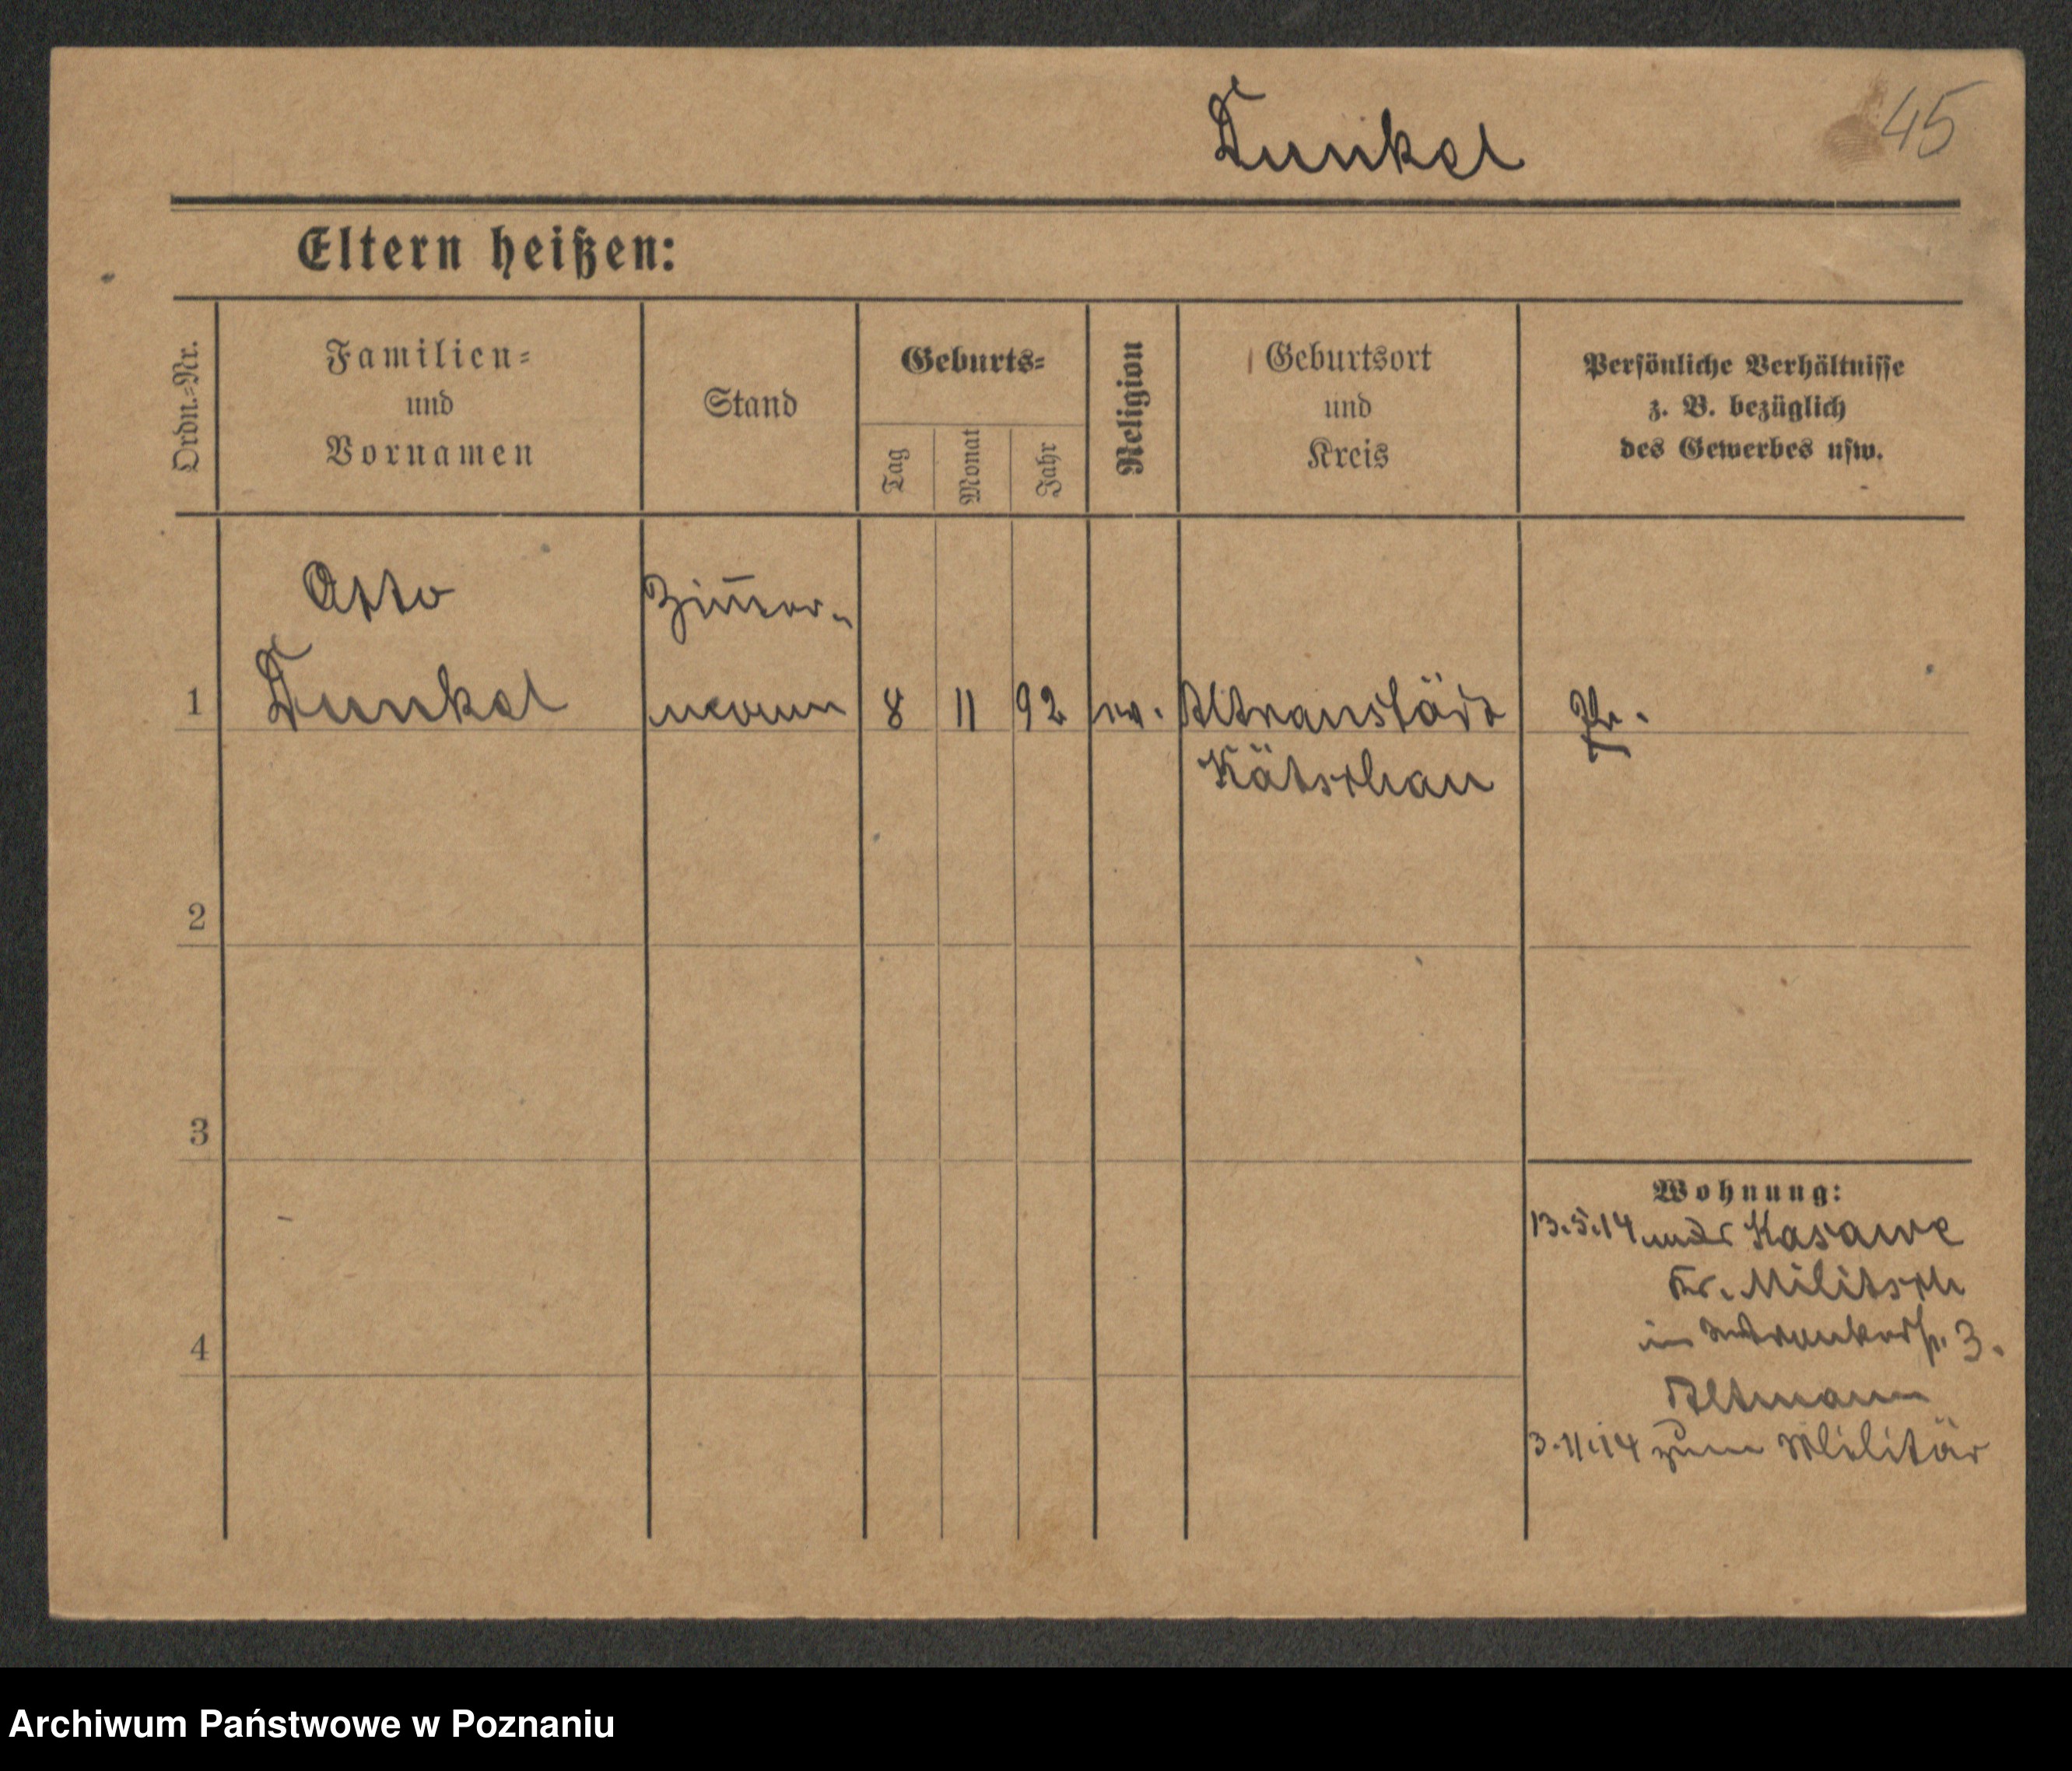 45
Dunkel
Eltern heißen:
Ordn.-Nr.
Familien-
und
Vornamen
Stand
Geburts-
Tag
Monat
Jahr
Religion
Geburtsort
und
Kreis
Persönliche Verhältnisse
z. B. bezüglich
des Gewerbes usw.
Otto
Dunkel
Zim̄er-
mann
1
8
11
92
ev.
Altranstädt
Kätschau
Pr.
2
3
4
Wohnung:
13.5.14 Kasawe
Kr. Militsch
in 3.
Altmann
3.11.14 zum Militär
Archiwum Państwowe w Poznaniu